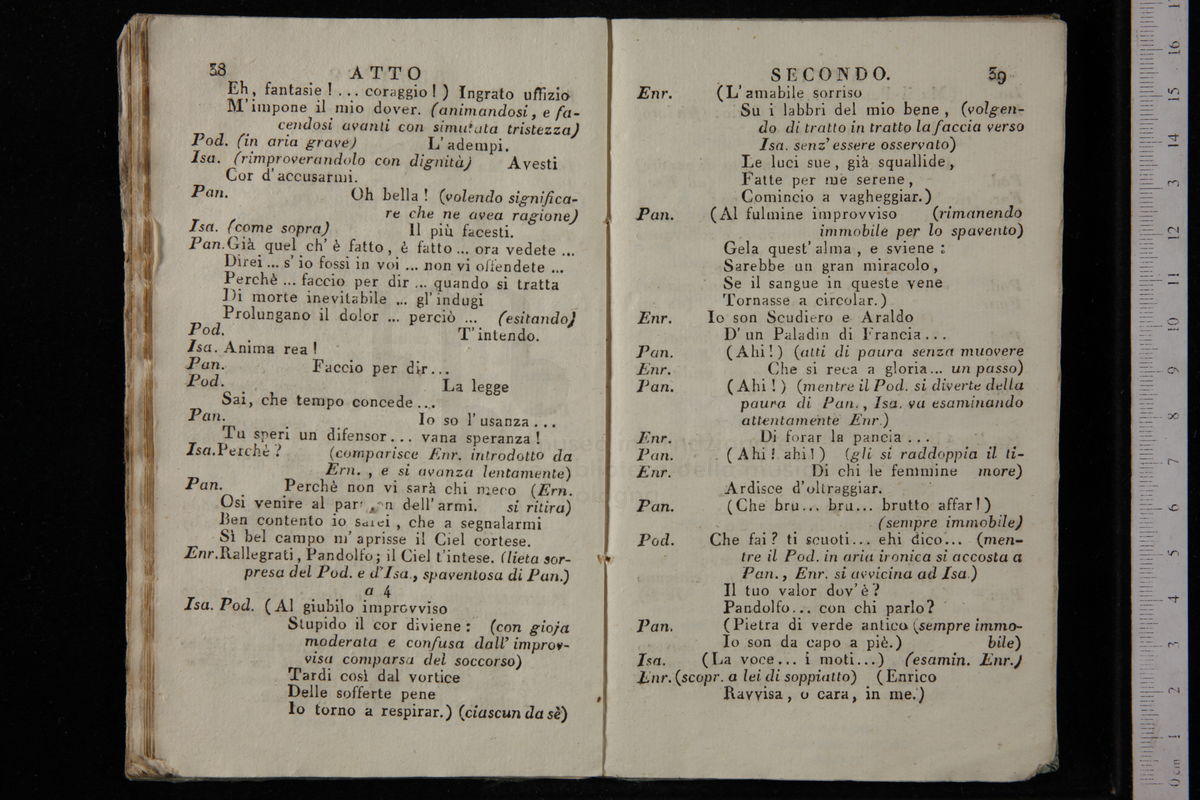 38 ATTO
Eh, fantasie! ... coraggio!) Ingrato uffizio
M'impone il mio dover. (animandosi, e fa-
cendosi avanti con simulata tristezza)
Pod. (in aria grave) L'adempi.
Isa. (rimproverandolo con dignità) Avesti
Cor d'accusarmi.
Pan. Oh bella! (volendo significa-
re che ne avea ragione)
Isa. (come sopra) Il più facesti.
Pan. Già quel ch'è fatto, è fatto ... ora vedete ...
Direi ... s'io fossi in voi ... non vi offendete ...
Perchè ... faccio per dir ... quando si tratta
Di morte inevitabile ... gl'indugi
Prolungano il dolor ... perciò ... (esitando)
Pod. T'intendo.
Isa. Anima rea!
Pan. Faccio per dir...
Pod. La legge
Sai, che tempo concede...
Pan. Io so l'usanza...
Tu speri un difensor... vana speranza!
Isa. Perchè? (comparisce Enr. introdotto da
Ern., e si avanza lentamente)
Pan. Perchè non vi sarà chi meco (Ern.
Osi venire al dell'armi. si ritira)
Ben contento io sarei, che a segnalarmi
Sì bel campo m'aprisse il Ciel cortese.
Enr. Rallegrati, Pandolfo; il Ciel t'intese. (lieta sor-
presa del Pod. e d'Isa., spaventosa di Pan.)
a 4
Isa. Pod. (Al giubilo improvviso
Stupido il cor diviene: (con gioja
moderata e confusa dall'improv-
visa comparsa del soccorso)
Tardi così dal vortice
Delle sofferte pene
Io torno a respirar.) (ciascun da sè)
SECONDO. 39
Enr. (L'amabile sorriso
Su i labbri del mio bene, (volgen-
do di tratto in tratto la faccia verso
Isa. senz'essere osservato)
Le luci sue, già squallide,
Fatte per me serene,
Comincio a vagheggiar.)
Pan. (Al fulmine improvviso (rimanendo
immobile per lo spavento)
Gela quest'alma, e sviene:
Sarebbe un gran miracolo,
Se il sangue in queste vene
Tornasse a circolar.)
Enr. Io son Scudiero e Araldo
D'un Paladin di Francia...
Pan. (Ahi!) (atti di paura senza muovere
Enr. Che si reca a gloria... un passo)
Pan. (Ahi!) (mentre il Pod. si diverte della
paura di Pan., Isa. va esaminando
attentamente Enr.)
Enr. Di forar la pancia...
Pan. (Ahi! ahi!) (gli si raddoppia il ti-
Enr. Di chi le femmine more)
Ardisce d'oltraggiar.
Pan. (Che bru... bru... brutto affar!)
(sempre immobile)
Pod. Che fai? ti scuoti... ehi dico... (men-
tre il Pod. in aria ironica si accosta a
Pan., Enr. si avvicina ad Isa.)
Il tuo valor dov'è?
Pandolfo... con chi parlo?
Pan. (Pietra di verde antico (sempre immo-
Io son da capo a piè.) bile)
Isa. (La voce... i moti...) (esamin. Enr.)
Enr. (scopr. a lei di soppiatto) (Enrico
Ravvisa, o cara, in me.)
0 cm 1 2 3 4 5 6 7 8 9 10 11 12 13 14 15 16 17